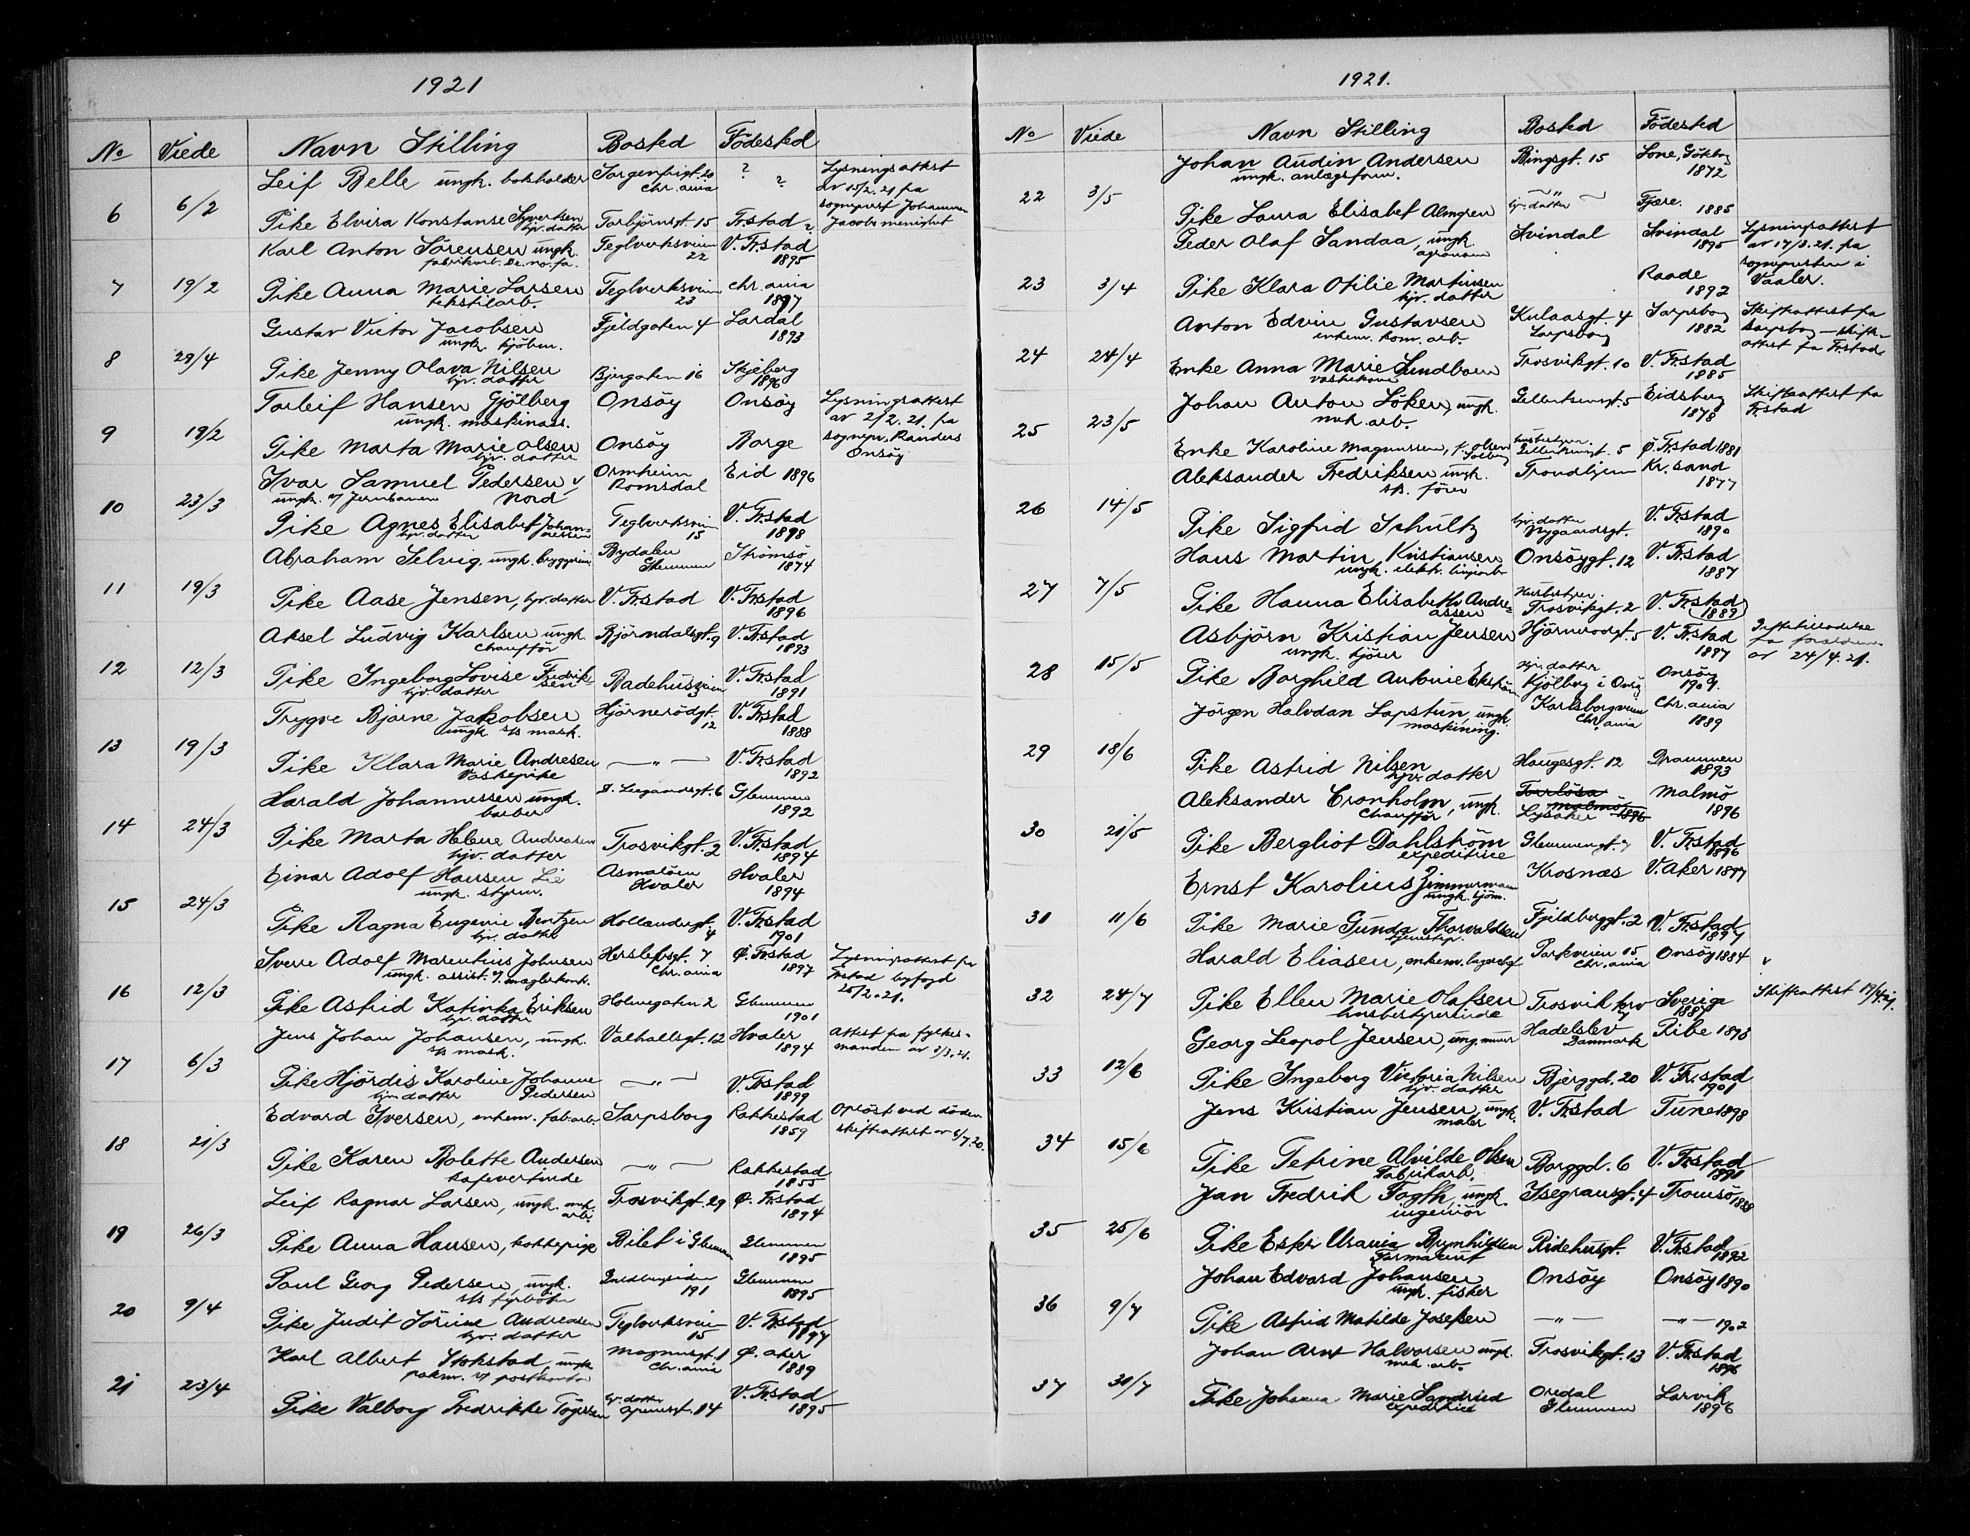 1921
No Viede Navn Stilling Bosted Födested
Leif Belle ungk. Sorgenfrigt. 20 ?
Chr.ania ? Lysningsattest
av 15/2. 21 fra
sogneprest Johannesen
6 6/2 Pike Elvira Konstanse Syvertsen Torbjörnsgt. 15 Fr.stad ? Jacobs menighet
hjv. datter
Karl Anton Sörensen ungk. Teglverksveien V. Fr.stad
fabrikarb. 22 1895
7 19/2 Pike Anna Marie Larsen Teglverksveien Chr.ania
tekstilarb. 23 1897
Gustav Victor Jacobsen Fjeldgaten 4 Lardal
ungk. kjöbm. 1893
8 29/4 Pike Jenny Olava Nilsen Bjergaten 16 Skjeberg
hjv. datter 1896
Torleif Hansen Gjölberg Onsöy Onsöy Lysningsattest
ungk. maskinass. av 2/2. 21. fra
9 19/2 Pike Marta Marie Olsen Onsöy Borge sognepr. Randers
hjv. datter Onsöy
Ivar Samuel Pedersen Ormheim Eid 1896
ungk. v/ Jernbanen Nord Romsdal
10 23/3 Pike Agnes Elisabet Johannessen Teglverksveien V. Fr.stad
hjv. datter 15 1898
Abraham Selvig, ungk. Bydalen Strömsö
Glemmen 1874
11 19/3 Pike Aase Jensen, hjv. datter V. Fr.stad V. Fr.stad
1896
Aksel Ludvig Karlsen ungk. Björndalsgt. 9 V. Fr.stad
chaufför 1893
12 12/3 Pike Ingeborg Lovise Fredriksen Badehusveien V. Fr.stad
hjv. datter 1891
Trygve Bjarne Jakobsen Hjörnerödgt. V. Fr.stad
ungk. s/s mask. 12 1888
13 19/3 Pike Klara Marie Andresen —"— V. Fr.stad
Vaskepike 1892
Harald Johannessen ungk. Glemmen
barber 1892
14 24/3 Pike Marta Helene Andreasen Trosvikgt. 2 V. Fr.stad
hjv. datter 1894
Einar Adolf Hansen Lie Asmalöen Hvaler
ungk. styrm. Hvaler 1894
15 24/3 Pike Ragna Eugenie Bentzen Hollændergt. V. Fr.stad
hjv. datter 4 1901
Sverre Adolf Marentius Johnsen Herslebsgt. 7 Ö. Fr.stad Lysningsattest fra
ungk. assist. v/ mæglerkont. Chr.ania 1897 Fr.stad byfogd
25/2. 21.
16 12/3 Pike Astrid Katinka Eriksen Holmegaten 2 Glemmen
hjv. datter 1901
Jens Johan Johansen, ungk. Valhallsgt. 12 Hvaler Attest fra fylkes-
s/s mask. 1894 manden av 3/3. 21.
17 6/3 Pike Hjördis Karoline Johanne —"— V. Fr.stad
hjv. datter Pedersen 1899
Edvard Iversen, enkem. fab.arb. Sarpsborg Rakkestad Oplöst ved döden
1859 skifteattest av 6/7. 20.
18 21/3 Pike Karen Bolette Andersen —"— Rakkestad
kafevertinde 1855
Leif Ragnar Larsen, ungk. mek. Trosvikgt. 29 Ö. Fr.stad
arb. 1894
19 26/3 Pike Anna Hansen, kokkepige Bilet i Glemmen Glemmen
1895
Paul Georg Pedersen, ungk. Glemmen
s/s fyrböter 191 1895
20 9/4 Pike Judit Sörine Andreasen Teglverksveien V. Fr.stad
hjv. datter 15 1897
Karl Albert Stokstad, ungk. Magnusgt. 1 Ö. Aker
pakm. v/ postkontor Chr.ania 1889
21 23/4 Pike Valborg Fredrikke hjv. datter V. Fr.stad
14 1895
1921.
No Viede Navn Stilling Bosted Födested
Johan Audin Andersen Bingsgt. 15 Lone, Göteborg
ungk. anlægsform. 1872
22 3/5 Pike Laura Elisabet Almgren hjv. datter —"— Fjære.
1885
Peder Olaf Sandaa, ungk. Svindal Svindal Lysningsattest
agronom 1895 av 17/3. 21. fra
sognepresten i
23 3/4 Pike Klara Otilie Martinsen Raade Vaaler.
hjv. datter 1892
Anton Edvin Gustavsen Kulaasgt. 4 Sarpsborg Skifteattest fra
enkem. kom. arb. Sarpsborg 1882 Sarpsborg — skifte-
attest fra Fr.stad
24 24/4 Enke Anna Marie Lundboen Trosvikgt. 10 V. Fr.stad
vaskekone 1885
Johan Anton Löken, ungk. 5 Eidsberg Skifteattest fra
mek. arb. 1878 Fr.stad
25 23/5 Enke Karoline Magnussen, f. Olsen husbestyr. 5 Ö. Fr.stad 1881
Aleksander Fredriksen ungk. Trondhjem Kr.sand
s/s. förer 1877
26 14/5 Pike Sigfrid Schultz hjv. datter V. Fr.stad
Nygaardsgt. 1890
Hans Martin Kristiansen Onsöygt. 12 V. Fr.stad
ungk. elektr. linjearb. 1887
27 7/5 Pike Hanna Elisabeth Andreassen Husbestyrer. V. Fr.stad
Trosvikgt. 2 (1889)
Asbjörn Kristian Jensen Hjörnerödgt. 5 V. Fr.stad Giftetilladelse
ungk. kjörer 1897 fra forældrene
av 24/4. 21.
28 15/5 Pike Borghild Antonie Ekström hjv. datter Onsöy
Kjölberg i Onsöy 1901.
Jörgen Halvdan Lapstun, ungk. Karlsborgveien Chr.ania
maskining. Chr.ania 1889
29 18/6 Pike Astrid Nilsen Haugesgt. 12 Drammen
hjv. datter 1893
Aleksander Cronholm, ungk. Torrlösa Malmö
chaufför Malmö 1896 1896
Lysaker
30 21/5 Pike Bergliot Dahlström Glemmengt. 7 V. Fr.stad
expeditrice 1896
Ernst Karolius Zimmermann Krosnæs V. Aker 1877
ungk. sjöm.
31 11/6 Pike Marie Gunda Thorvaldsen Fjeldberggt. 2 V. Fr.stad
tjenestep. 1897
Harald Eliasen, enkem. Parkveien 15 Onsöy 1884 v
Chr.ania
32 24/7 Pike Ellen Marie Olafsen Trosvik Sverige Skifteattest
husbestyrerinde 1887
Georg Leopol Jensen, ung. murer Hadelslev Ribe 1893
Danmark
33 12/6 Pike Ingeborg Victoria Nilsen Bjerggd. 20 V. Fr.stad
hjv. datter 1901
Jens Kristian Jensen, ungk. V. Fr.stad Tune 1898
maler
34 15/6 Pike Petrine Alvilde Olsen Borggd. 6 V. Fr.stad
Fabrikarb.
Jan Fredrik Fogth, ungk. Isegransgt. 4 Tromsö
ingeniör
35 25/6 Pike Eski Urania Brynhildsen Ridehusgt. V. Fr.stad
Farmaceut 1892
Johan Edvard Johansen Onsöy Onsöy 1890
ungk. fisker
36 9/7 Pike Astrid Matilde Josefsen —"— —"— 1902
Johan Arnt Halvorsen ungk. Trosvikgt. 13 V. Fr.stad
mek. arb. 1896
37 31/7 Pike Johanna Marie Sandrud Oredal Larvik
expeditrice Glemmen 1896